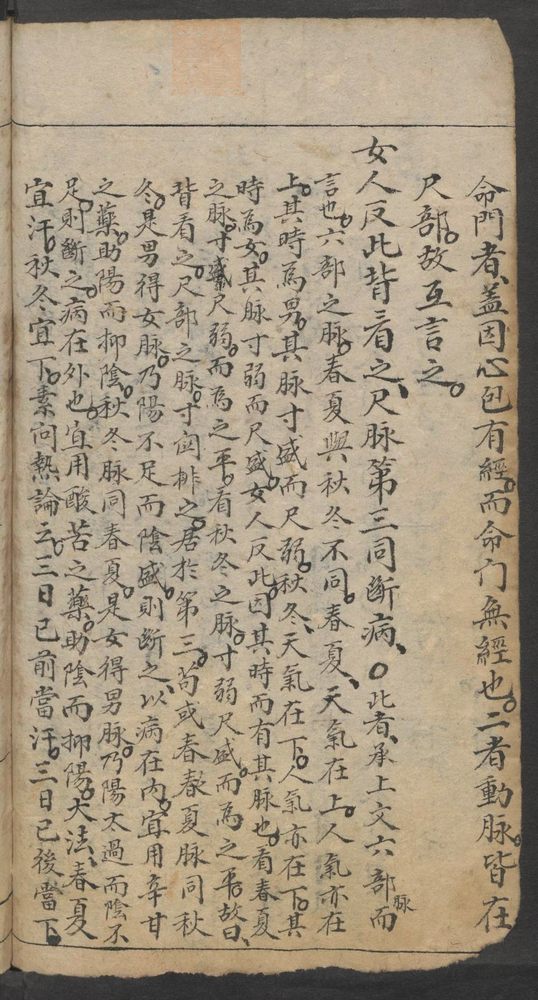 命門者、盖因心包有經。而命门無經也。二者動脉。皆在
尺部。故互言之。
女人反此背看之、尺脉第三同斷病、〇此者、承上文六部脉而
言也。六部之脉。春夏與秋冬不同。春夏、天氣在上。人氣亦在
上。其時爲男。其脉寸盛而尺弱。秋冬、天氣在下。人氣亦在下。其
時爲女。其脉寸弱而尺盛。女人反此。因其時而有其脉也。看春夏
之脉。寸盛尺弱。而爲之平。看秋冬之脉。寸弱尺盛。而爲之平。故曰、
背看之。尺部之脉。寸関排之。居於第三。苟或春春夏脉同秋
冬。是男得女脉。乃陽不足而陰盛。則斷之、以病在内。宜用辛甘
之藥。助陽而抑陰。秋冬脉同春夏。是女得男脉。乃陽太過而陰不
足。則斷之。病在外也。宜用酸苦之藥。助陰而抑陽。大法、春夏
宜汗。秋冬宜下。素问熱論云。三日已前當汗。三日已後當下。